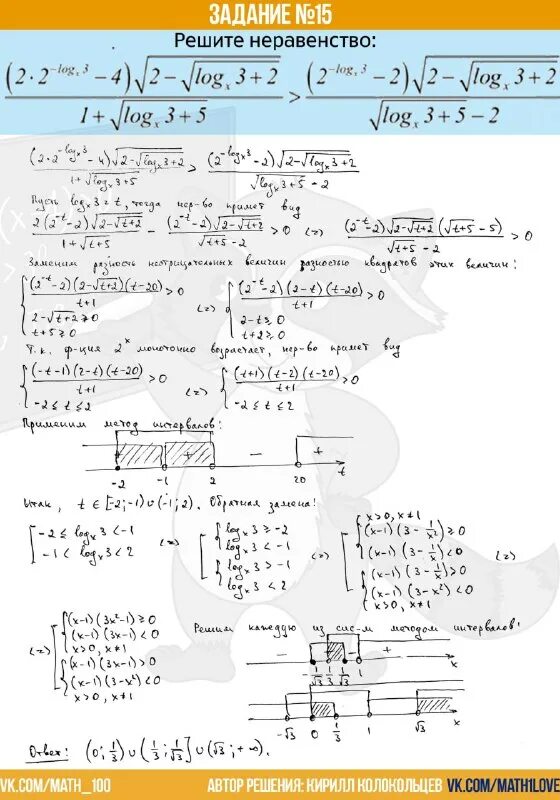 ЗАДАНИЕ №15
Решите неравенство:
(2·2^(-log_x 3) - 4)√(2-√(log_x 3+2)) / (1+√(log_x 3+5)) > (2^(-log_x 3) - 2)√(2-√(log_x 3+2)) / (√(log_x 3+5) - 2)
(2·2^(-log_x 3) - 4)√(2-√(log_x 3+2)) / (1+√(log_x 3+5)) > (2^(-log_x 3) - 2)√(2-√(log_x 3+2)) / (√(log_x 3+5) - 2)
Пусть log_x 3 = t, тогда нер-во примет вид
2(2^(-t) - 2)√(2-√(t+2)) / (1+√(t+5)) - (2^(-t) - 2)√(2-√(t+2)) / (√(t+5) - 2) > 0 (=) (2^(-t) - 2)√(2-√(t+2)) (√(t+5) - 5) / (√(t+5) - 2) > 0
Заменим разность неотрицательных величин разностью квадратов этих величин:
{ (2^(-t) - 2)(2-√(t+2))(t-20) / (t+1) > 0 (=) { (2^(-t) - 2)(2-t)(t-20) / (t+1) > 0
2-√(t+2) ≥ 0 2-t ≥ 0
t+5 ≥ 0 t+2 ≥ 0
Т.к. ф-ция 2^x монотонно возрастает, нер-во примет вид
{ (-t-1)(2-t)(t-20) / (t+1) > 0 (=) { (t+1)(t-2)(t-20) / (t+1) > 0
-2 ≤ t ≤ 2 -2 ≤ t ≤ 2
Применим метод интервалов:
+ + - +
-2 -1 2 20 t
Итак, t ∈ [-2;-1) ∪ (-1;2). Обратная замена:
[ -2 ≤ log_x 3 < -1 (=) [ { log_x 3 ≥ -2 (=) [ { x>0, x≠1
-1 < log_x 3 < 2 log_x 3 < -1 (x-1)(3 - 1/x²) ≥ 0
{ log_x 3 > -1 (x-1)(3 - 1/x) < 0 (=)
log_x 3 < 2 { (x-1)(3 - 1/x) > 0
(x-1)(3 - x²) < 0
x>0, x≠1
(=) [ { (x-1)(3x²-1) ≥ 0
(x-1)(3x-1) < 0
x>0, x≠1
{ (x-1)(3x-1) > 0
(x-1)(3-x²) < 0
x>0, x≠1
Решим каждую из систем методом интервалов:
- + - +
-1/√3 1/3 1/√3 1 x
-√3 0 1/3 1 √3 x
Ответ: (0; 1/3) ∪ (1/3; 1/√3] ∪ (√3; +∞).
VK.COM/MATH_100
АВТОР РЕШЕНИЯ: КИРИЛЛ КОЛОКОЛЬЦЕВ VK.COM/MATH1LOVE